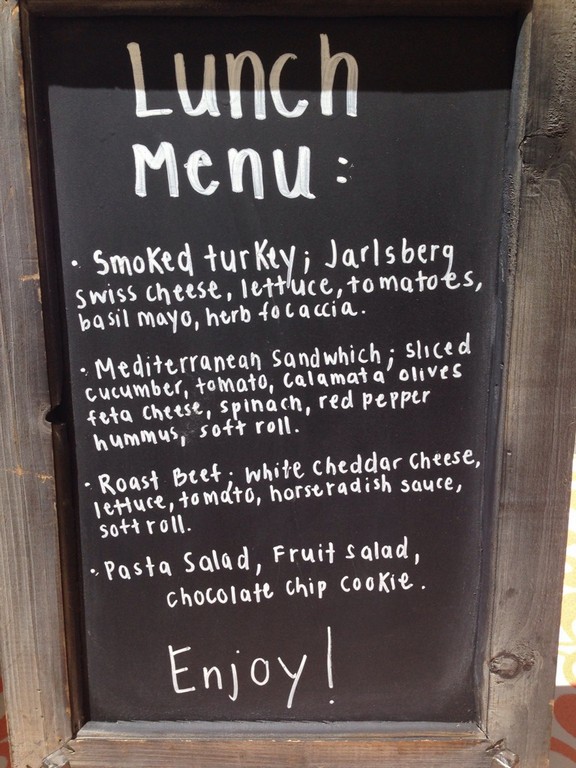 Lunch
Menu:
· Smoked turkey; Jarlsberg
swiss cheese, lettuce, tomatoes,
basil mayo, herb focaccia.
· Mediterranean Sandwhich; sliced
cucumber, tomato, calamata olives
feta cheese, spinach, red pepper
hummus, soft roll.
· Roast Beef; white cheddar cheese,
lettuce, tomato, horseradish sauce,
soft roll.
· Pasta Salad, Fruit Salad,
chocolate chip cookie.
Enjoy!